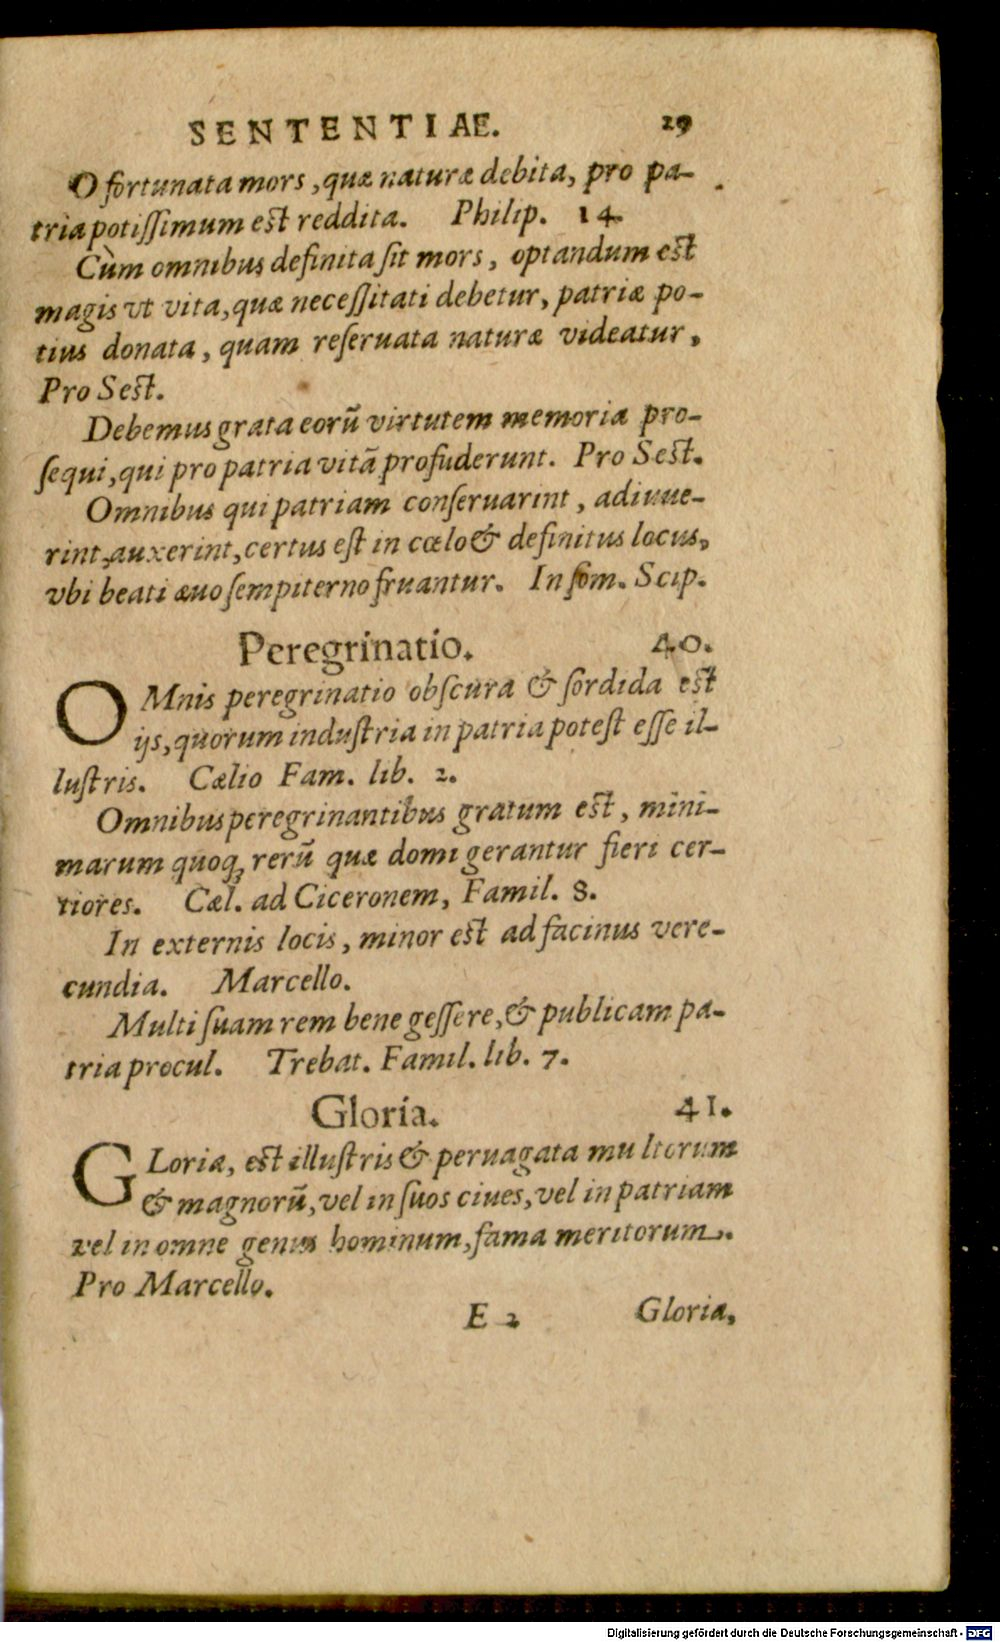 SENTENTIAE. 29
O fortunata mors, quæ naturæ debita, pro pa-
tria potiſſimum eſt reddita. Philip. 14.
Cùm omnibus definita ſit mors, optandum eſt
magis vt vita, quæ neceſſitati debetur, patriæ po-
tius donata, quam reſeruata naturæ videatur,
Pro Seſt.
Debemus grata eorũ virtutem memoria pro-
ſequi, qui pro patria vitã profuderunt. Pro Seſt.
Omnibus qui patriam conſeruarint, adiuue-
rint, auxerint, certus eſt in cœlo & definitus locus,
vbi beati æuo ſempiterno fruantur. In ſom. Scip.
Peregrinatio. 40.
OMnis peregrinatio obſcura & ſordida eſt
ijs, quorum induſtria in patria poteſt eſſe il-
luſtris. Cælio Fam. lib. 2.
Omnibus peregrinantibus gratum eſt, mini-
marum quoq; rerũ quæ domi gerantur fieri cer-
tiores. Cæl. ad Ciceronem, Famil. 8.
In externis locis, minor eſt ad facinus vere-
cundia. Marcello.
Multi ſuam rem bene geſſere, & publicam pa-
tria procul. Trebat. Famil. lib. 7.
Gloria. 41.
GLoria, eſt illuſtris & peruagata multorum
& magnorũ, vel in ſuos ciues, vel in patriam
vel in omne genus hominum, fama meritorum.
Pro Marcello.
E 2 Gloria,
Digitalisierung gefördert durch die Deutsche Forschungsgemeinschaft - DFG